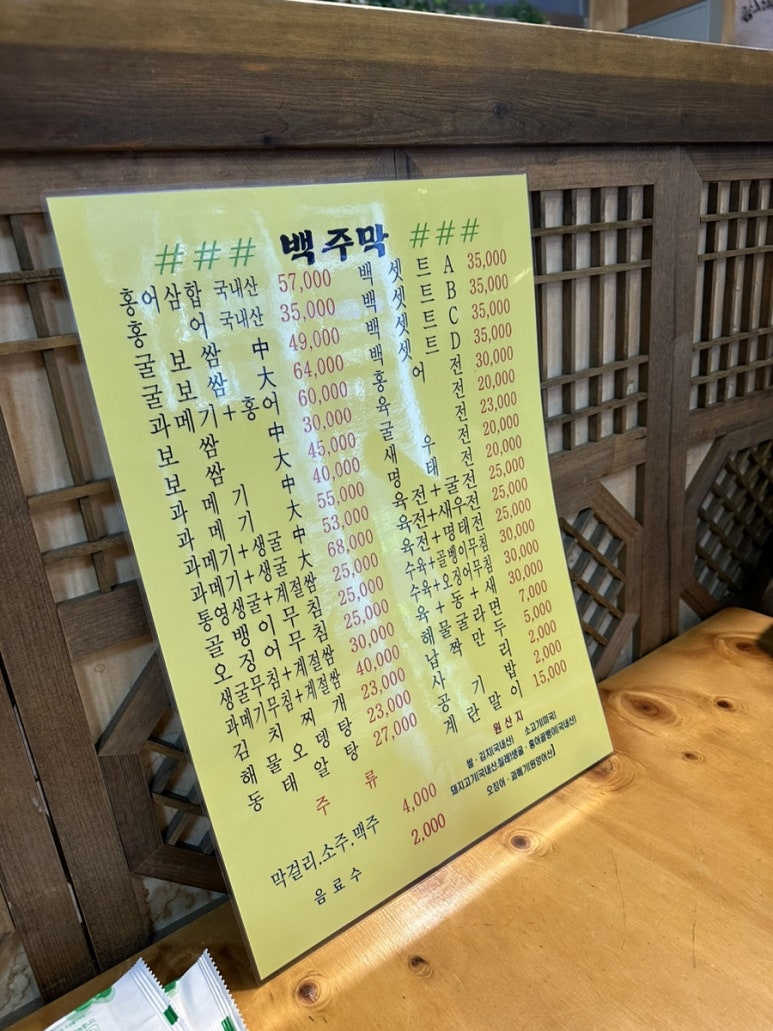 ### 백주막 ###
홍어삼합 국내산 57,000
홍어 국내산 35,000
굴보쌈 中 49,000
굴보쌈 大 64,000
과메기+홍어 60,000
보쌈 中 30,000
보쌈 大 45,000
과메기 中 40,000
과메기 大 55,000
과메기+생굴 中 53,000
과메기+생굴 大 68,000
통영생굴+계절쌈 25,000
골뱅이무침 25,000
오징어무침 25,000
생굴무침+계절쌈 30,000
과메기무침+계절쌈 40,000
김치찌개 23,000
해물오뎅탕 23,000
동태알탕 27,000
주류
막걸리.소주.맥주 4,000
음료수 2,000
백셋트 A 35,000
백셋트 B 35,000
백셋트 C 35,000
백셋트 D 35,000
홍어전 30,000
육전 20,000
굴전 23,000
새우전 20,000
명태전 20,000
육전+굴전 25,000
육전+새우전 25,000
육전+명태전 25,000
수육+골뱅이무침 30,000
수육+오징어무침 30,000
육+굴+새 30,000
해물라면 7,000
납짝만두 5,000
사리 2,000
공기밥 2,000
계란말이 15,000
원산지
쌀·김치(국내산) 소고기(미국)
돼지고기(국내산,칠레)생굴·홍어골뱅이(국내산)
오징어·과메기(원양어선)